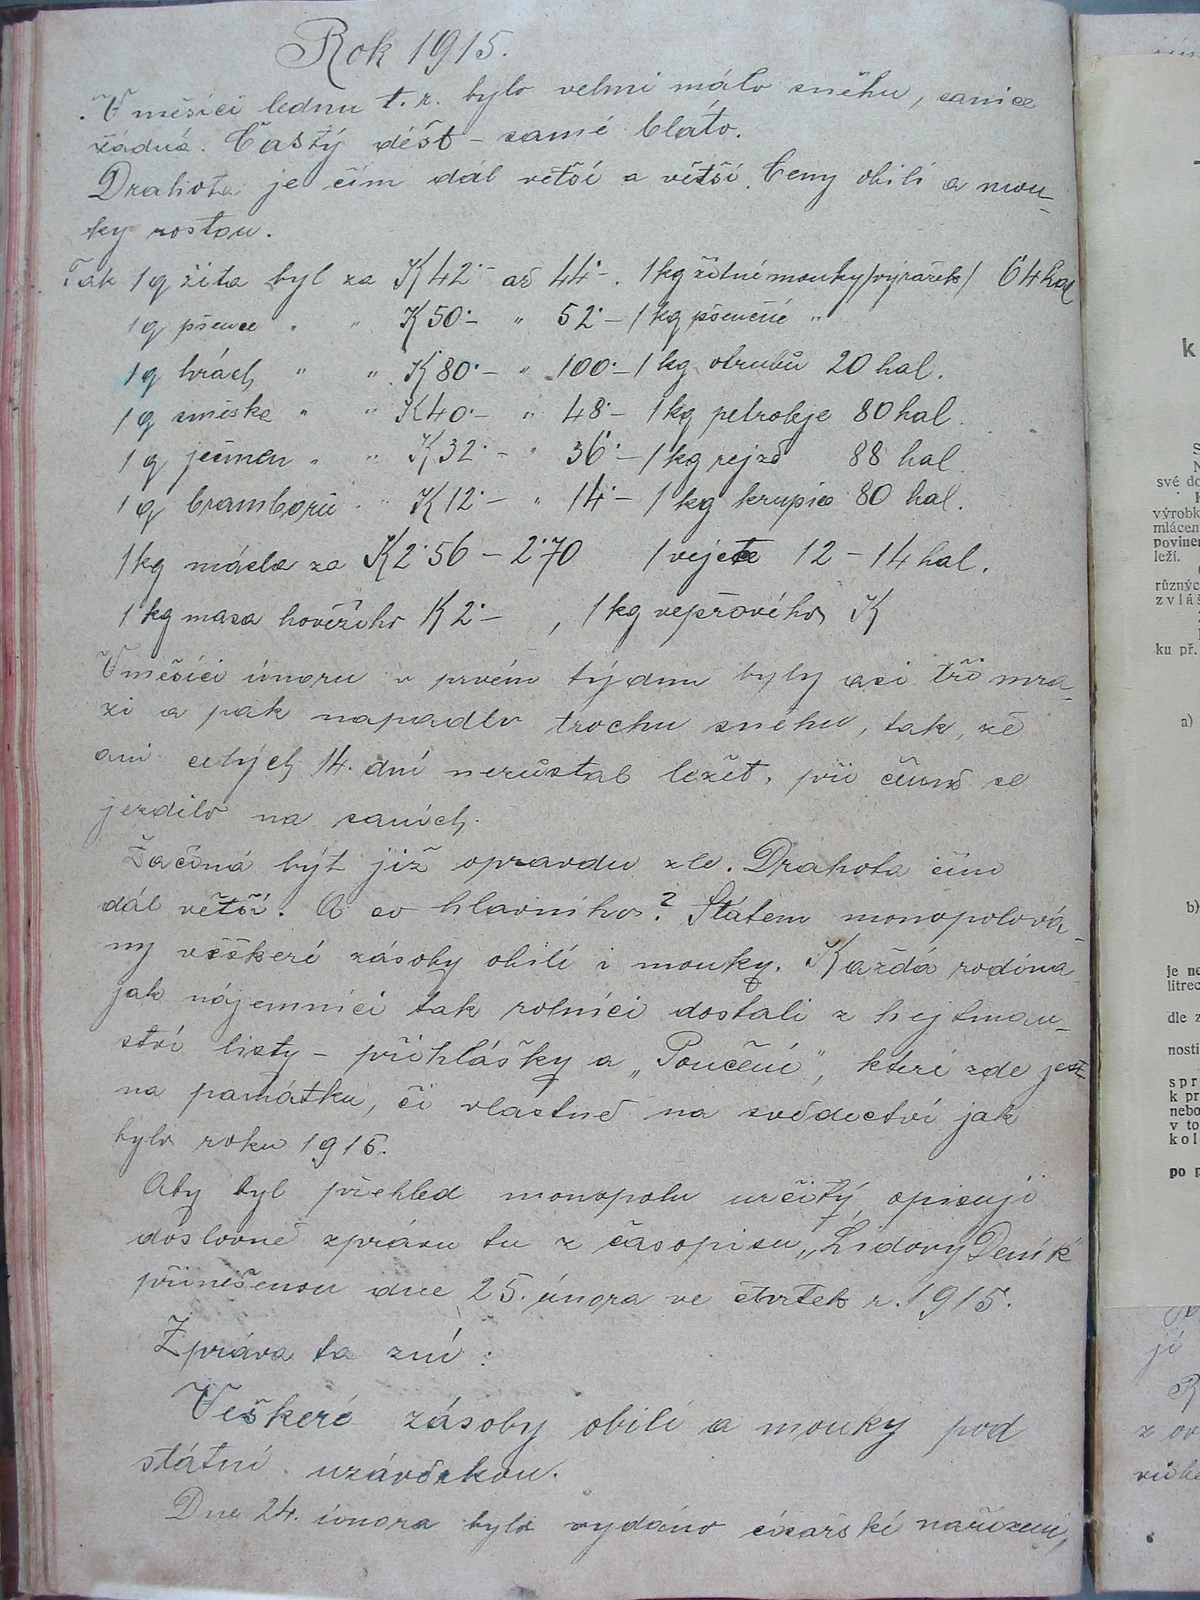 Rok 1915.
V měsíci lednu t. r. bylo velmi málo sněhu, sanice
žádná. Častý déšt – samé bláto.
Drahota je čím dál větší a větší. Ceny obilí a mou-
ky rostou.
Tak 1 q žita byl za K 42·– až 44·–. 1 kg žitné mouky /výražek/ 64 hal
1 q pšenice " " K 50·– " 52·– 1 kg pšeničné "
1 q hrách " " K 80·– " 100·– 1 kg otrubů 20 hal.
1 q směska " " K 40·– " 48·– 1 kg petroleje 80 hal.
1 q ječmen " " K 32·– " 36·– 1 kg rejže 88 hal.
1 q bramborů " K 12·– " 14·– 1 kg krupice 80 hal.
1 kg másla za K 2·56 – 2·70 1 vejce 12 – 14 hal.
1 kg masa hovězího K 2·– , 1 kg vepřového K
V měsíci únoru v prvém týdnu byly asi tři mra-
zi a pak napadlo trochu sněhu, tak, že
ani celých 14. dní nezůstal ležet, při čemž se
jezdilo na saních.
Začíná být již opravdu zle. Drahota čím
dál větší. A co hlavního? Státem monopolová-
ny veškeré zásoby obilí i mouky. Každá rodina
jak nájemníci tak rolníci dostali z hejtman-
ství listy – přihlášky a „Poučení", které zde jest
na památku, či vlastně na svědectví jak
bylo roku 1915.
Aby byl přehled monopolu určitý opisuji
doslovně zprávu tu z časopisu „Lidový Deník"
přinešenou dne 25. února ve čtvrtek r. 1915.
Zpráva ta zní:
Veškeré zásoby obilí a mouky pod
státní uzávěrkou.
Dne 24. února bylo vydáno císařské nařízení,
k
své do
výrobk
mlácen
povinen
leží.
různýc
zvláš
ku př.
a)
b)
je ne
litrec
dle z
nosti
spr
k pr
nebo
v to
kol
po p